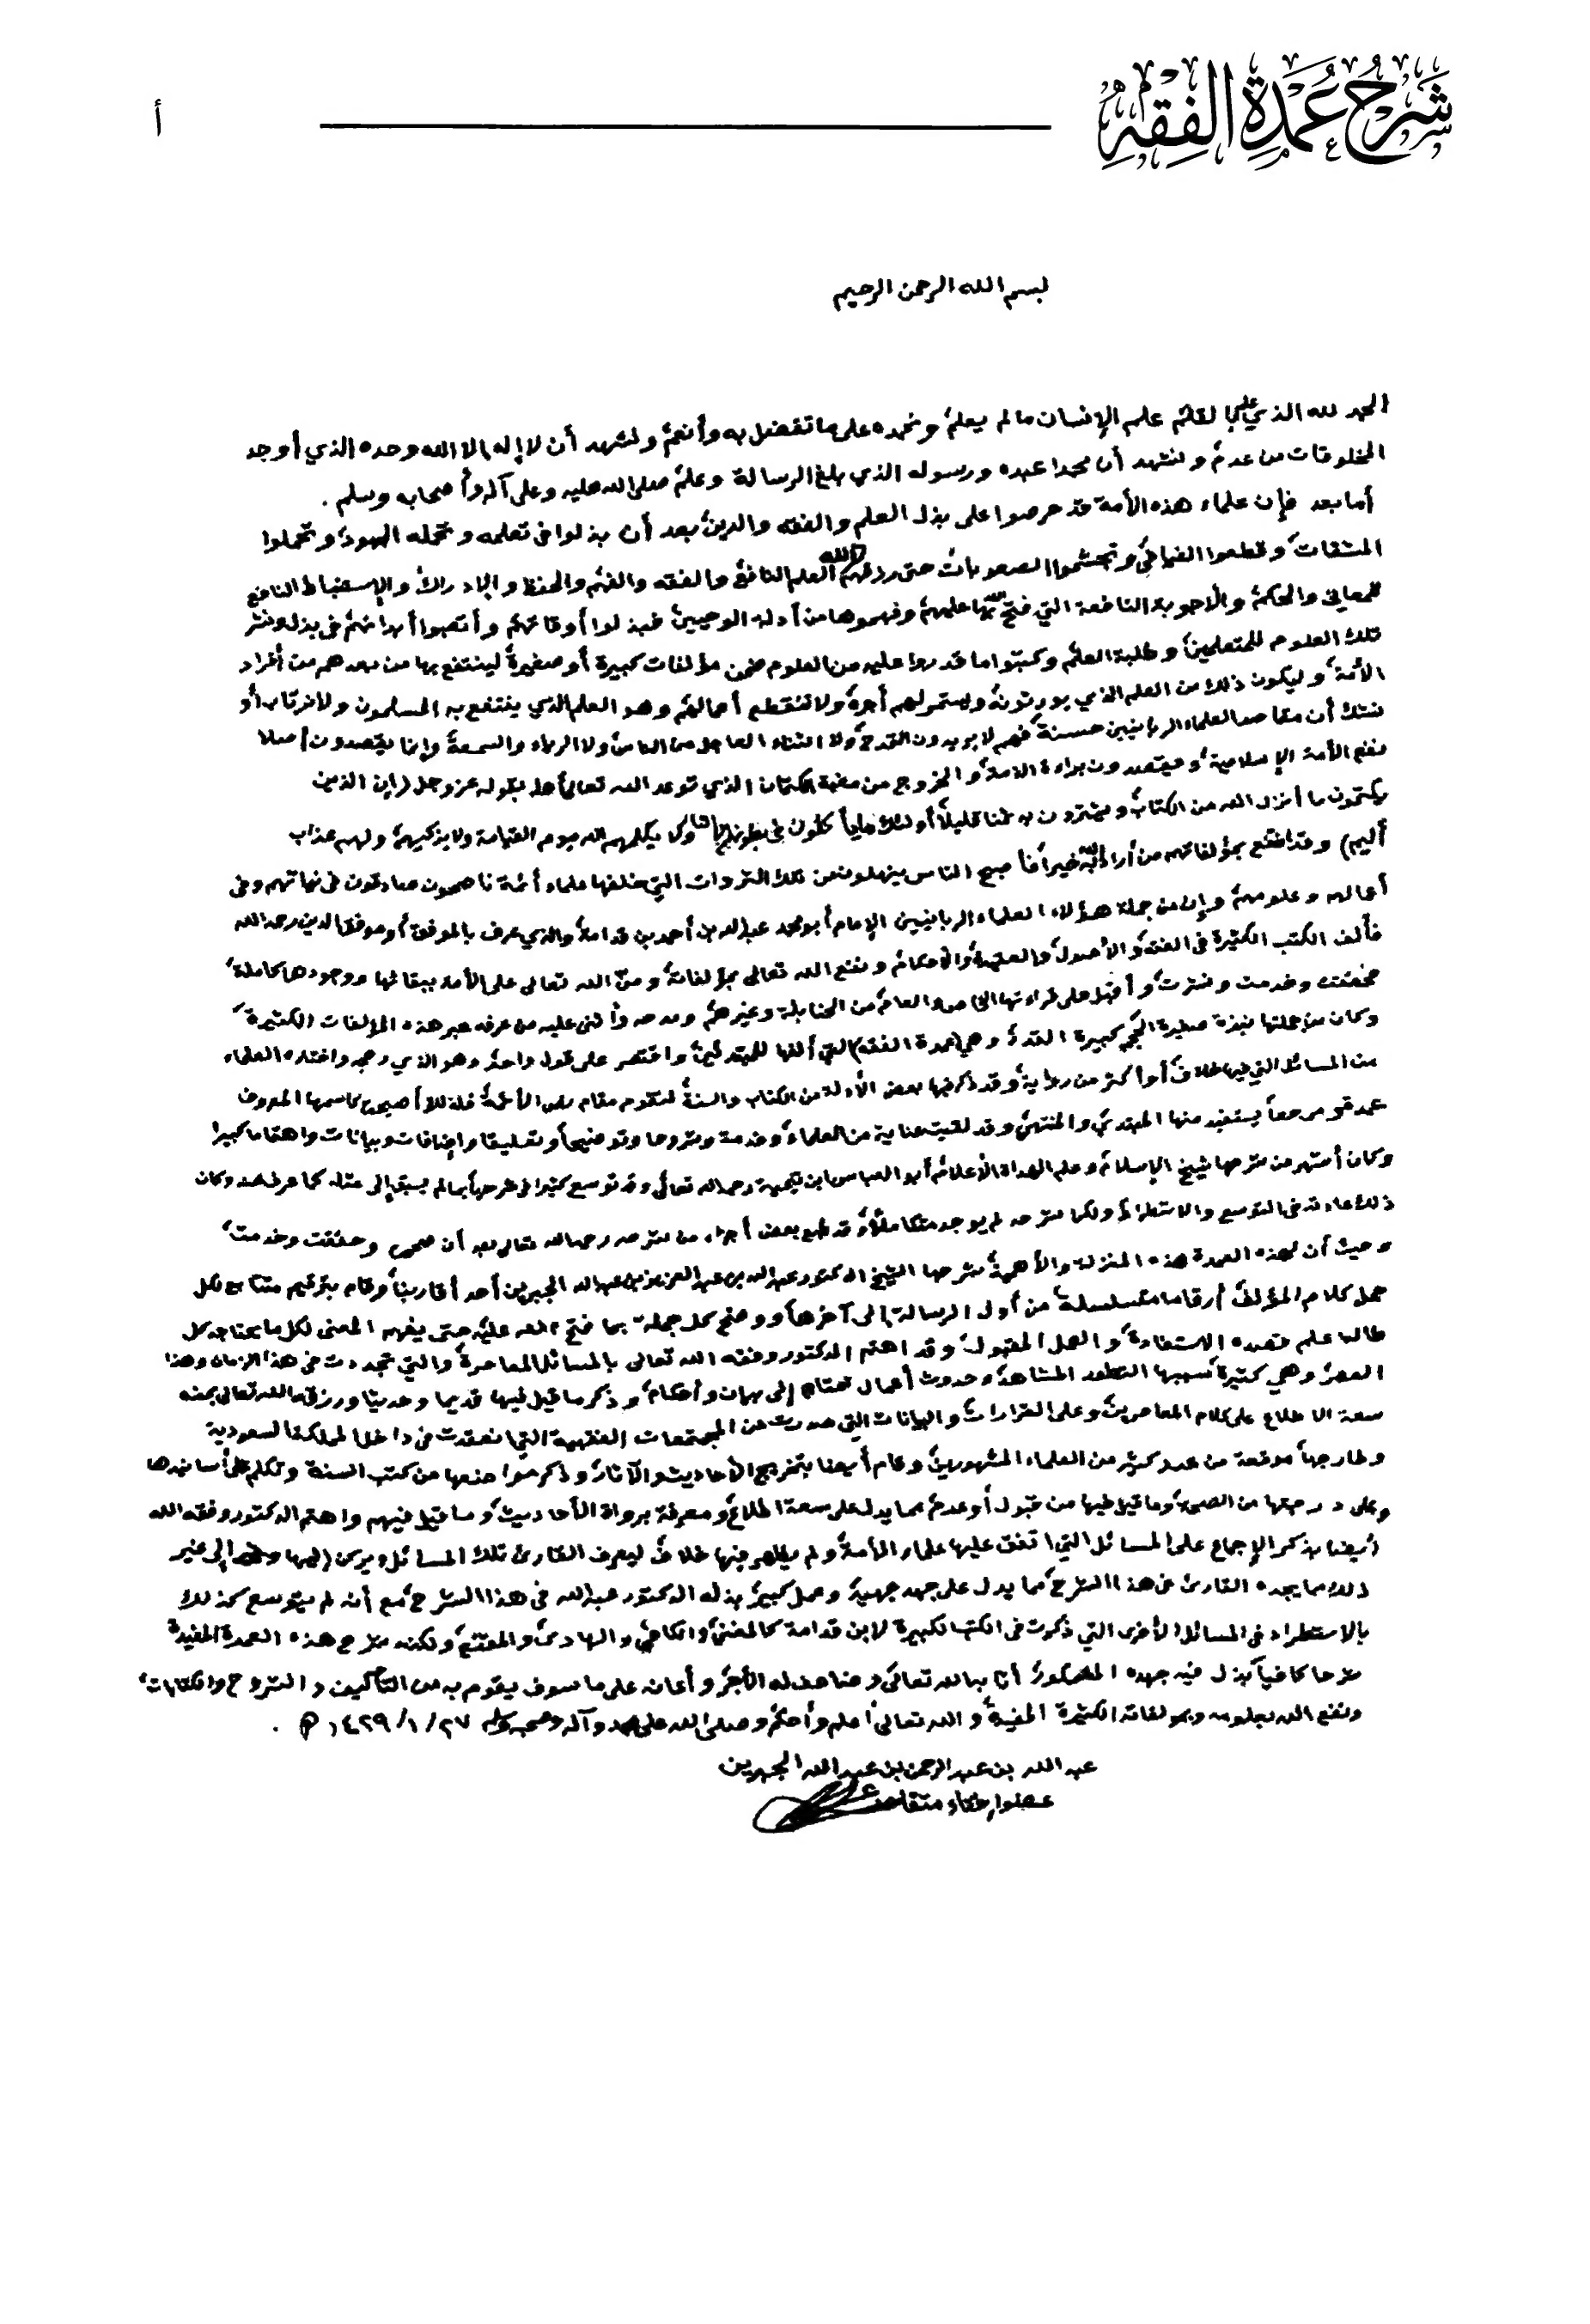 شَرْحُ عُمْدَةِ الفِقْهِ
أ
بسم الله الرحمن الرحيم
الحمد لله الذي علم بالقلم علم الإنسان ما لم يعلم، ونحمده على ما تفضل به وأنعم، ونشهد أن لا إله إلا الله وحده الذي أوجد
المخلوقات من عدم، ونشهد أن محمدا عبده ورسوله الذي بلغ الرسالة وعلم صلى الله عليه وعلى آله وأصحابه وسلم.
أما بعد فإن علماء هذه الأمة قد حرصوا على بذل العلم والفقه والدين، بعد أن بذلوا في تعلمه وتحمله الجهود، وتحملوا
المشقات، وقطعوا الفيافي، وتجشموا الصعوبات، حتى رزقهم الله العلم النافع، والفقه والفهم والحفظ والإدراك، والاستنباط النافع
للمعاني والحكم، والأجوبة النافعة التي فتح الله بها عليهم، وفهموها من أدلة الوحيين، فبذلوا أوقاتهم، وأتعبوا أبدانهم في بذل ونشر
تلك العلوم للمتعلمين، وطلبة العلم، وكتبوا ما قدروا عليه من العلوم ضمن مؤلفات كبيرة أو صغيرة، لينتفع بها من بعدهم من أفراد
الأمة، وليكون ذلك من العلم الذي يورثونه، ويستمر لهم أجره، ولا تنقطع أعمالهم، وهو العلم الذي ينتفع به المسلمون ولا نرتاب أو
نشك أن مقاصد العلماء الربانيين حسنة، فهم لا يريدون المدح، ولا الثناء العاجل من الناس، ولا الرياء والسمعة، وإنما يقصدون أصلا
نفع الأمة الإسلامية، ويقصدون براءة الذمة، والخروج من مغبة الكتمان الذي توعد الله تعالى أهله بقوله عز وجل (إن الذين
يكتمون ما أنزل الله من الكتاب ويشترون به ثمنا قليلاً أولئك ما يأكلون في بطونهم إلا النار ولا يكلمهم الله يوم القيامة ولا يزكيهم ولهم عذاب
أليم) وقد انتفع بمؤلفاتهم من أراد الله به خيراً، فأصبح الناس ينهلون من تلك الثروات التي خلفها علماء أئمة ناصحون صادقون في نياتهم وفي
أعمالهم وعلومهم، وإن من جملة هؤلاء العلماء الربانيين الإمام أبو محمد عبدالله بن أحمد بن قدامة، والذي عرف بالموفق، أو موفق الدين رحمه الله
فألف الكتب الكثيرة في الفقه، والأصول، والعقيدة، والأحكام، ونفع الله تعالى بمؤلفاته، ومنّ الله تعالى على الأمة ببقائها ووجودها كاملة،
فحققت وخدمت ونشرت، وأقبل على قراءتها الخاص والعام، من الحنابلة وغيرهم، ومدحه وأثنى عليه من عرفه عبر هذه المؤلفات الكثيرة،
وكان من جملتها نبذة صغيرة الحجم، كبيرة القدر، وهي (عمدة الفقه) التي ألفها للمبتدئين، واقتصر على قول واحد، وهو الذي رجحه واختاره العلماء
من المسائل التي فيها خلاف، أو أكثر من رواية، وقد ذكر فيها بعض الأدلة من الكتاب والسنة لتقوم مقام رأي الأئمة، فلذلك أصبحت كاسمها المعروف
عمدة، ومرجعاً يستفيد منها المبتدي، والمنتهي، وقد لقيت عناية من العلماء، وخدمة وشروحا وتوضيحاً، وتعليقا وإضافات وبيانات واهتماما كبيرا
وكان أشهر من شرحها شيخ الإسلام، وعلم الهداة الأعلام، أبو العباس ابن تيمية رحمه الله تعالى، وقد توسع كثيرا في شرحها بما لم يسبق إلى مثله كما عرف عنه، وكان
ذلك عادته في التوسع والاستطراد، ولكن شرحه لم يوجد متكاملاً، وقد طبع بعض أجزاء من شرحه رحمه الله تعالى بعد أن صححت وحققت وخدمت،
وحيث أن لهذه العمدة هذه المنزلة والأهمية، شرحها الشيخ الدكتور عبدالله بن عبدالعزيز بن عبدالله الجبرين أحد أقاربنا، وقام بترقيم متتابع لكل
جمل كلام المؤلف، أرقاما متسلسلة من أول الرسالة إلى آخرها، ووضح كل جملة بما فتح الله عليه، حتى يفهم المعنى لكل ما يحتاجه كل
طالب علم قصده الاستفادة، والعمل المقبول، وقد اهتم الدكتور وفقه الله تعالى بالمسائل المعاصرة، والتي تجددت في هذا الزمان وهذا
العصر، وهي كثيرة، سببها التطور المشاهد، وحدوث أعمال تحتاج إلى بيان وأحكام، وذكر ما قيل فيها قديما وحديثا ورزقه الله تعالى بمنه
سعة الاطلاع على كلام المعاصرين، وعلى القرارات، والبيانات التي صدرت من المجتمعات الفقهية التي انعقدت في داخل المملكة السعودية
وخارجها، موقعة من عدد كثير من العلماء المشهورين، وقام أيضا بتخريج الأحاديث والآثار، وذكر مواضعها من كتب السنة وتكلم على أسانيدها
وعلى درجتها من الصحة، وما قيل فيها من قبول أو عدم، مما يدل على سعة اطلاع، ومعرفة برواة الأحاديث، وما قيل فيهم واهتم الدكتور وفقه الله
أيضا بذكر الإجماع على المسائل التي اتفق عليها علماء الأمة، ولم يظهر فيها خلاف، ليعرف القارئ تلك المسائل، ويركن إليها إلى غير
ذلك مما يجده القارئ في هذا الشرح، مما يدل على جهد جهيد، وعمل كبير، بذله الدكتور عبدالله في هذا الشرح، مع أنه لم يتوسع كذلك
بالاستطراد في المسائل الأخرى التي ذكرت في الكتب الكبيرة لابن قدامة كالمغني، والكافي، والهادي، والمقنع، ولكنه شرح هذه العمدة المفيدة
شرحا كافياً، بذل فيه جهده المشكور، أثابه الله تعالى، وضاعف له الأجر، وأعانه على ما سوف يقوم به من التأليف والشروح والكتابات،
ونفع الله بعلومه وبمؤلفاته الكثيرة المفيدة، والله تعالى أعلم وأحكم، وصلى الله على محمد وآله وصحبه وسلم ٢٧/١/١٤٢٩هـ.
عبدالله بن عبدالرحمن بن عبدالله الجبرين
عضو إفتاء متقاعد